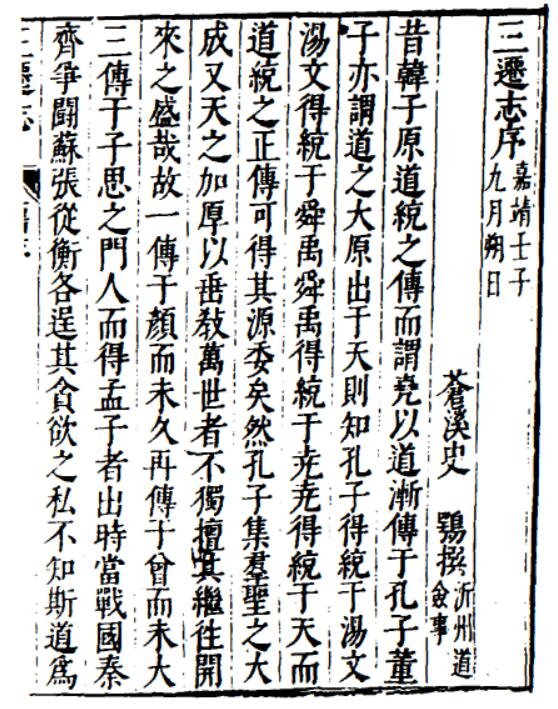 三遷志序嘉靖壬子九月朔日
蒼溪史鶚撰沂州道僉事
昔韓子原道統之傳而謂堯以道漸傳于孔子董
子亦謂道之大原出于天則知孔子得統于湯文
湯文得統于舜禹舜禹得統于堯堯得統于天而
道統之正傳可得其源委矣然孔子集羣聖之大
成又天之加厚以垂敎萬世者不獨擅其繼徃開
來之盛哉故一傳于顔而未久再傳于曾而未大
三傳于子思之門人而得孟子者出時當戰國秦
齊爭鬬蘇張從衡各逞其貪欲之私不知斯道爲
三遷志